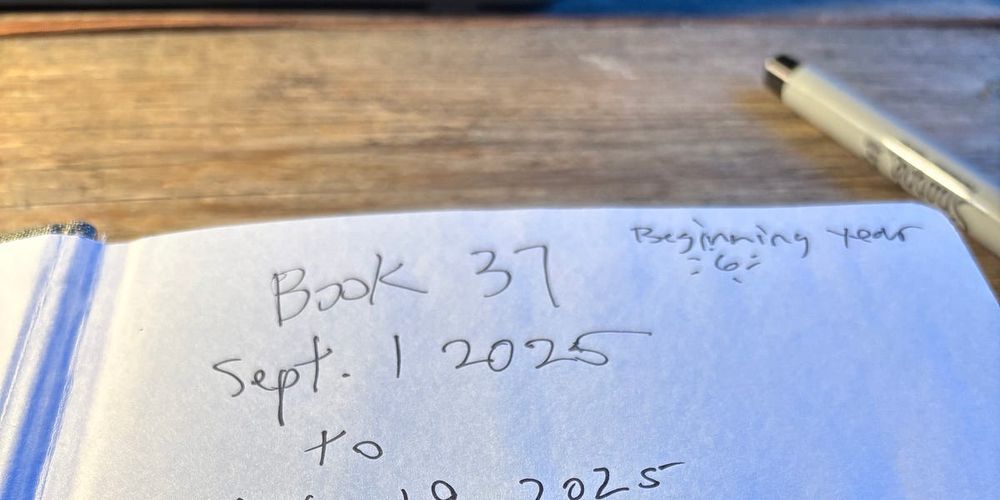 Beginning year
6
Book 37
Sept. 1 2025
to
2025